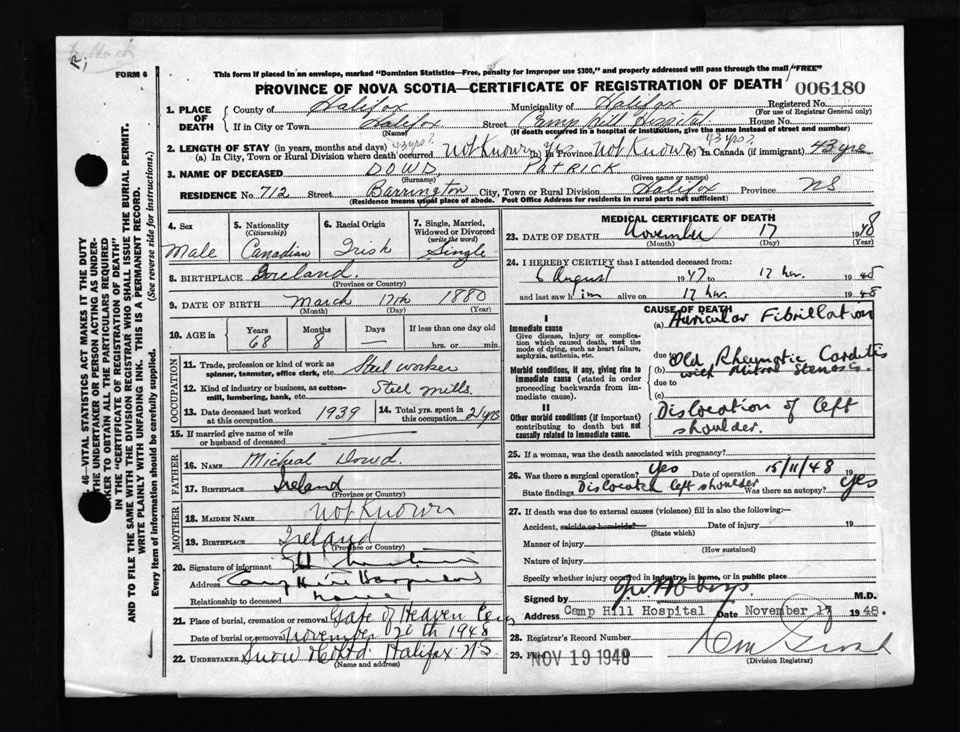 FORM 6
This form if placed in an envelope, marked "Dominion Statistics—Free, penalty for improper use $300," and properly addressed will pass through the mail "FREE"
PROVINCE OF NOVA SCOTIA—CERTIFICATE OF REGISTRATION OF DEATH 006180
1. PLACE OF DEATH County of Halifax Municipality of Halifax Registered No.
(For use of Registrar General only)
If in City or Town Halifax Street Camp Hill Hospital House No.
(Name) (If death occurred in a hospital or institution, give the name instead of street and number)
2. LENGTH OF STAY (in years, months and days) 43 yrs? 43 yrs?
(a) In City, Town or Rural Division where death occurred Not Known (b) In Province Yes Not Known (c) In Canada (if immigrant) 43 yrs
3. NAME OF DECEASED DOWD, PATRICK.
(Surname) (Given name or names)
RESIDENCE No. 712 Street Barrington City, Town or Rural Division Halifax Province NS
(Residence means usual place of abode. Post Office Address for residents in rural parts not sufficient)
4. Sex Male
5. Nationality (Citizenship) Canadian
6. Racial Origin Irish
7. Single, Married, Widowed or Divorced (write the word) Single
8. BIRTHPLACE Ireland.
(Province or Country)
9. DATE OF BIRTH March 17th 1880
(Month) (Day) (Year)
10. AGE in Years 68 Months 8 Days — If less than one day old
hrs. or min.
OCCUPATION
11. Trade, profession or kind of work as spinner, teamster, office clerk, etc. Steel worker
12. Kind of industry or business, as cotton-mill, lumbering, bank, etc. Steel mills.
13. Date deceased last worked at this occupation 1939
14. Total yrs. spent in this occupation 21 yrs
15. If married give name of wife or husband of deceased
FATHER
16. NAME Micheal Dowd.
17. BIRTHPLACE Ireland
(Province or Country)
MOTHER
18. MAIDEN NAME Not Known
19. BIRTHPLACE Ireland
(Province or Country)
20. Signature of informant
Address Camp Hill
Relationship to deceased
21. Place of burial, cremation or removal Gate of Heaven Cem
Date of burial or cremation November 20th 1948
22. UNDERTAKER Snow & Co Ltd. Halifax N.S.
(Name and address)
MEDICAL CERTIFICATE OF DEATH
23. DATE OF DEATH November 17 1948
(Month) (Day) (Year)
24. I HEREBY CERTIFY that I attended deceased from:
6 August 1947 to 17 Nov. 1948
and last saw him alive on 17 Nov. 1948
CAUSE OF DEATH
I
Immediate cause (a) Auricular Fibrillation
Give disease, injury or complication which caused death, not the mode of dying, such as heart failure, asphyxia, asthenia, etc.
due to
Morbid conditions, if any, giving rise to immediate cause (stated in order proceeding backwards from immediate cause). (b) Old Rheumatic Carditis with Mitral Stenosis
due to
(c)
II
Other morbid conditions (if important) contributing to death but not causally related to immediate cause. Dislocation of left shoulder.
25. If a woman, was the death associated with pregnancy?
26. Was there a surgical operation? Yes Date of operation 15/11/48 19
State findings Dislocated left shoulder Was there an autopsy? Yes
27. If death was due to external causes (violence) fill in also the following:
Accident, suicide or homicide? Date of injury 19
(State which)
Manner of injury
(How sustained)
Nature of injury
Specify whether injury occurred in industry, in home, or in public place
Signed by M.D.
Address Camp Hill Hospital Date November 17 1948.
28. Registrar's Record Number
29. Filed NOV 19 1948
(Division Registrar)
46—VITAL STATISTICS ACT MAKES IT THE DUTY
THE UNDERTAKER OR PERSON ACTING AS UNDERTAKER TO OBTAIN ALL THE PARTICULARS REQUIRED
IN THE "CERTIFICATE OF REGISTRATION OF DEATH"
AND TO FILE THE SAME WITH THE DIVISION REGISTRAR WHO SHALL ISSUE THE BURIAL PERMIT.
WRITE PLAINLY WITH UNFADING INK. THIS IS A PERMANENT RECORD.
Every item of information should be carefully supplied. (See reverse side for instructions.)